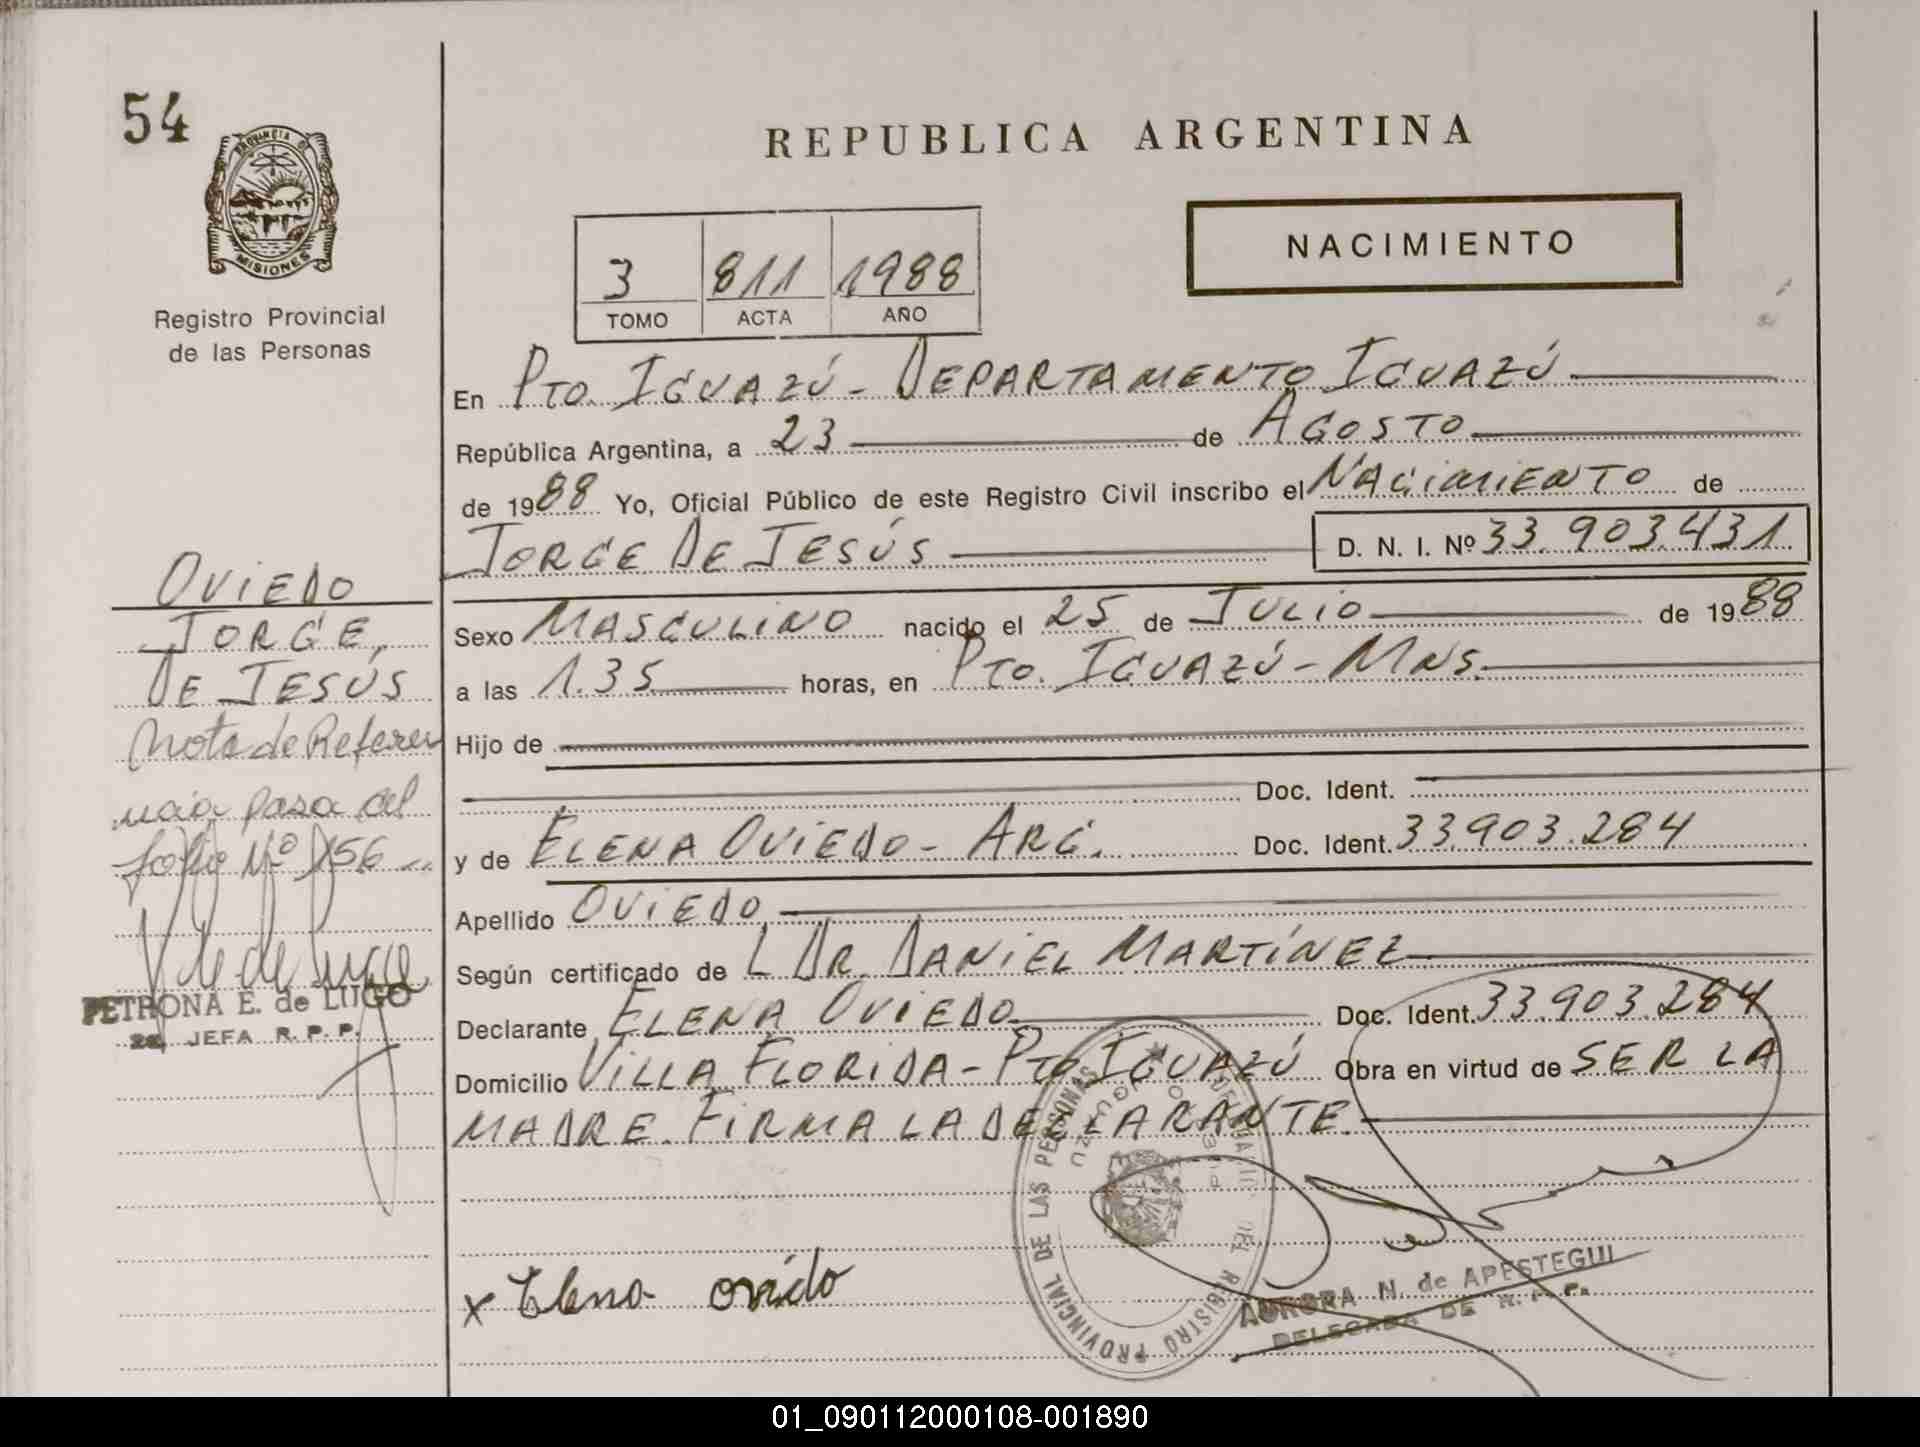 54
PROVINCIA DE
MISIONES
Registro Provincial
de las Personas
REPUBLICA ARGENTINA
NACIMIENTO
3 811 1988
TOMO ACTA AÑO
En Pto. Iguazú - Departamento Iguazú
República Argentina, a 23 de Agosto
de 1988 Yo, Oficial Público de este Registro Civil inscribo el Nacimiento de
Jorge De Jesús D. N. I. Nº 33.903.431
Sexo Masculino nacido el 25 de Julio de 1988
a las 1.35 horas, en Pto. Iguazú - Mns.
Hijo de
Doc. Ident.
y de Elena Oviedo - Arg. Doc. Ident. 33.903.284
Apellido Oviedo
Según certificado de L Dr. Daniel Martínez
Declarante Elena Oviedo Doc. Ident. 33.903.284
Domicilio Villa Florida - Pto Iguazú Obra en virtud de ser la
madre. Firma la declarante.
Oviedo
Jorge,
De Jesús
Nota de Referen
ncia pasa al
folio Nº 156
PETRONA E. de LUGO
JEFA R. P. P.
x Elena oviedo
REGISTRO PROVINCIAL DE LAS PERSONAS
AURORA N. de APESTEGUI
DELEGADA DE R. P. P.
01_090112000108-001890